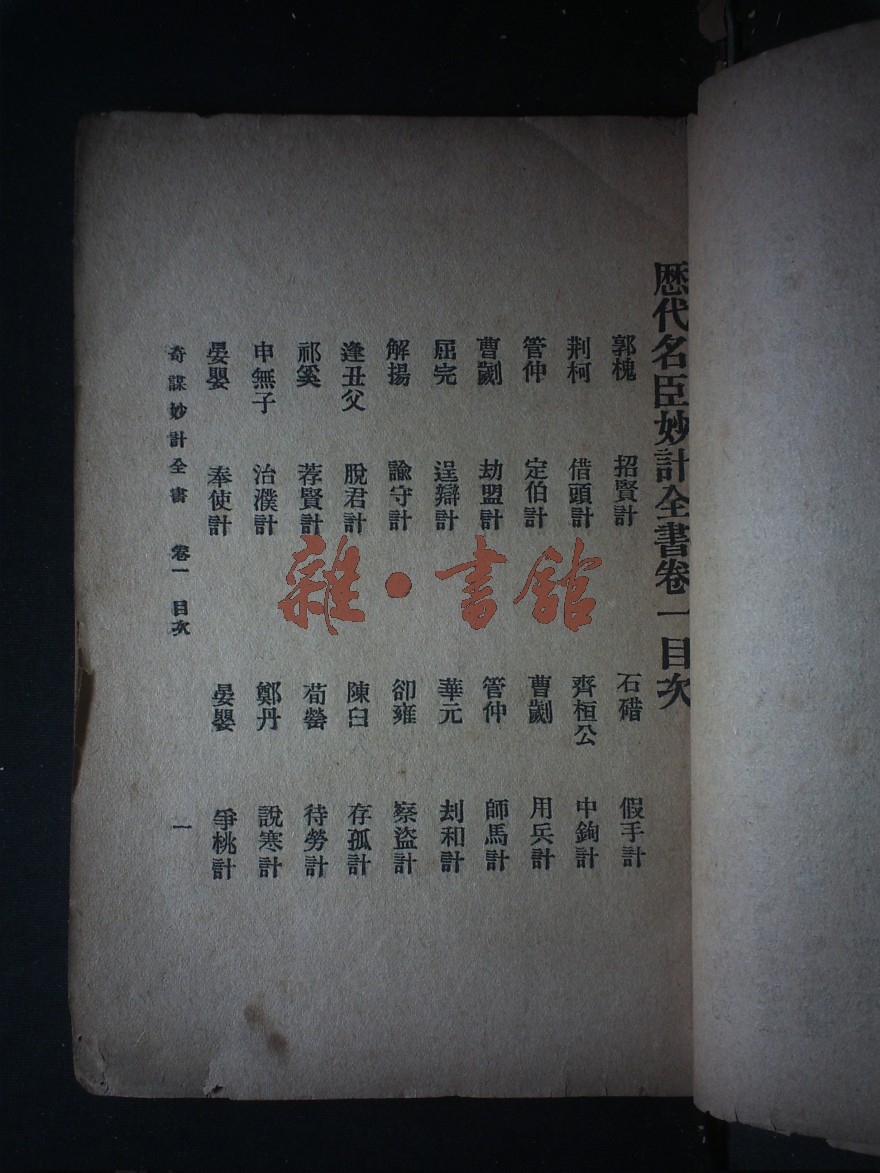 歷代名臣妙計全書卷一目次
郭槐 招賢計 石碏 假手計
荆柯 借頭計 齊桓公 中鉤計
管仲 定伯計 曹劌 用兵計
曹劌 劫盟計 管仲 師馬計
屈完 逞辯計 華元 刦和計
解揚 諭守計 郤雍 察盜計
逢丑父 脫君計 陳臼 存孤計
祁奚 荐賢計 荀罃 待勞計
申無子 治濮計 鄭丹 說寒計
晏嬰 奉使計 晏嬰 爭桃計
奇謀妙計全書 卷一 目次 一
雜·書館